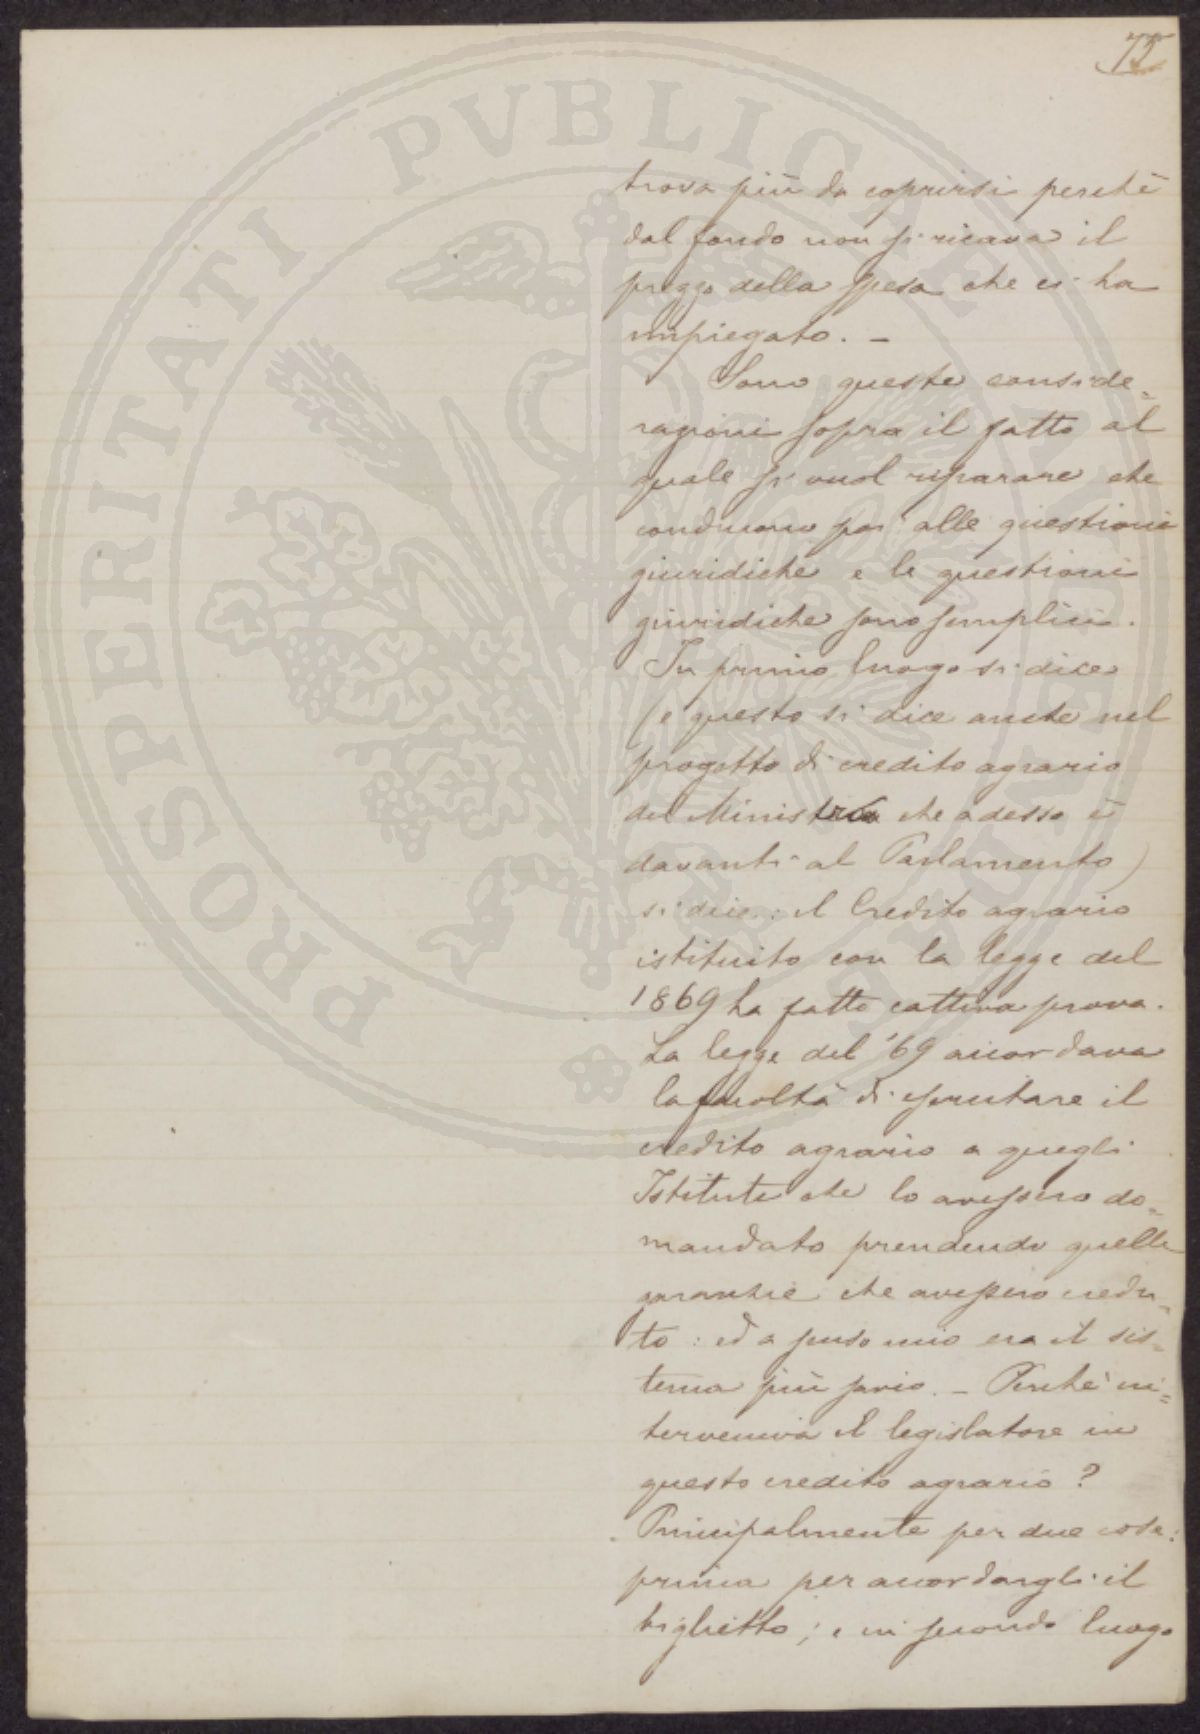 75
PROSPERITATI PVBLICAE AVGENDAE
trova più da coprirsi perchè
dal fondo non si ricava il
prezzo della spesa che ci ha
impiegato. –
Sono queste conside=
razioni sopra il fatto al
quale si vuol riparare che
conducono poi alle questioni
giuridiche e le questioni
giuridiche sono semplici.
In primo luogo si dice
(e questo si dice anche nel
progetto di credito agrario
del Ministro che adesso è
davanti al Parlamento)
si dice: il Credito agrario
istituito con la legge del
1869 ha fatto cattiva prova.
La legge del '69 accordava
la facoltà di esercitare il
credito agrario a quegli
Istituti che lo avessero do=
mandato prendendo quelle
garanzie che avessero credu=
to: ed a senso mio era il sis=
tema più savio. – Perchè in=
terveniva il legislatore in
questo credito agrario?
Principalmente per due cose:
prima per accordargli il
biglietto; e in secondo luogo